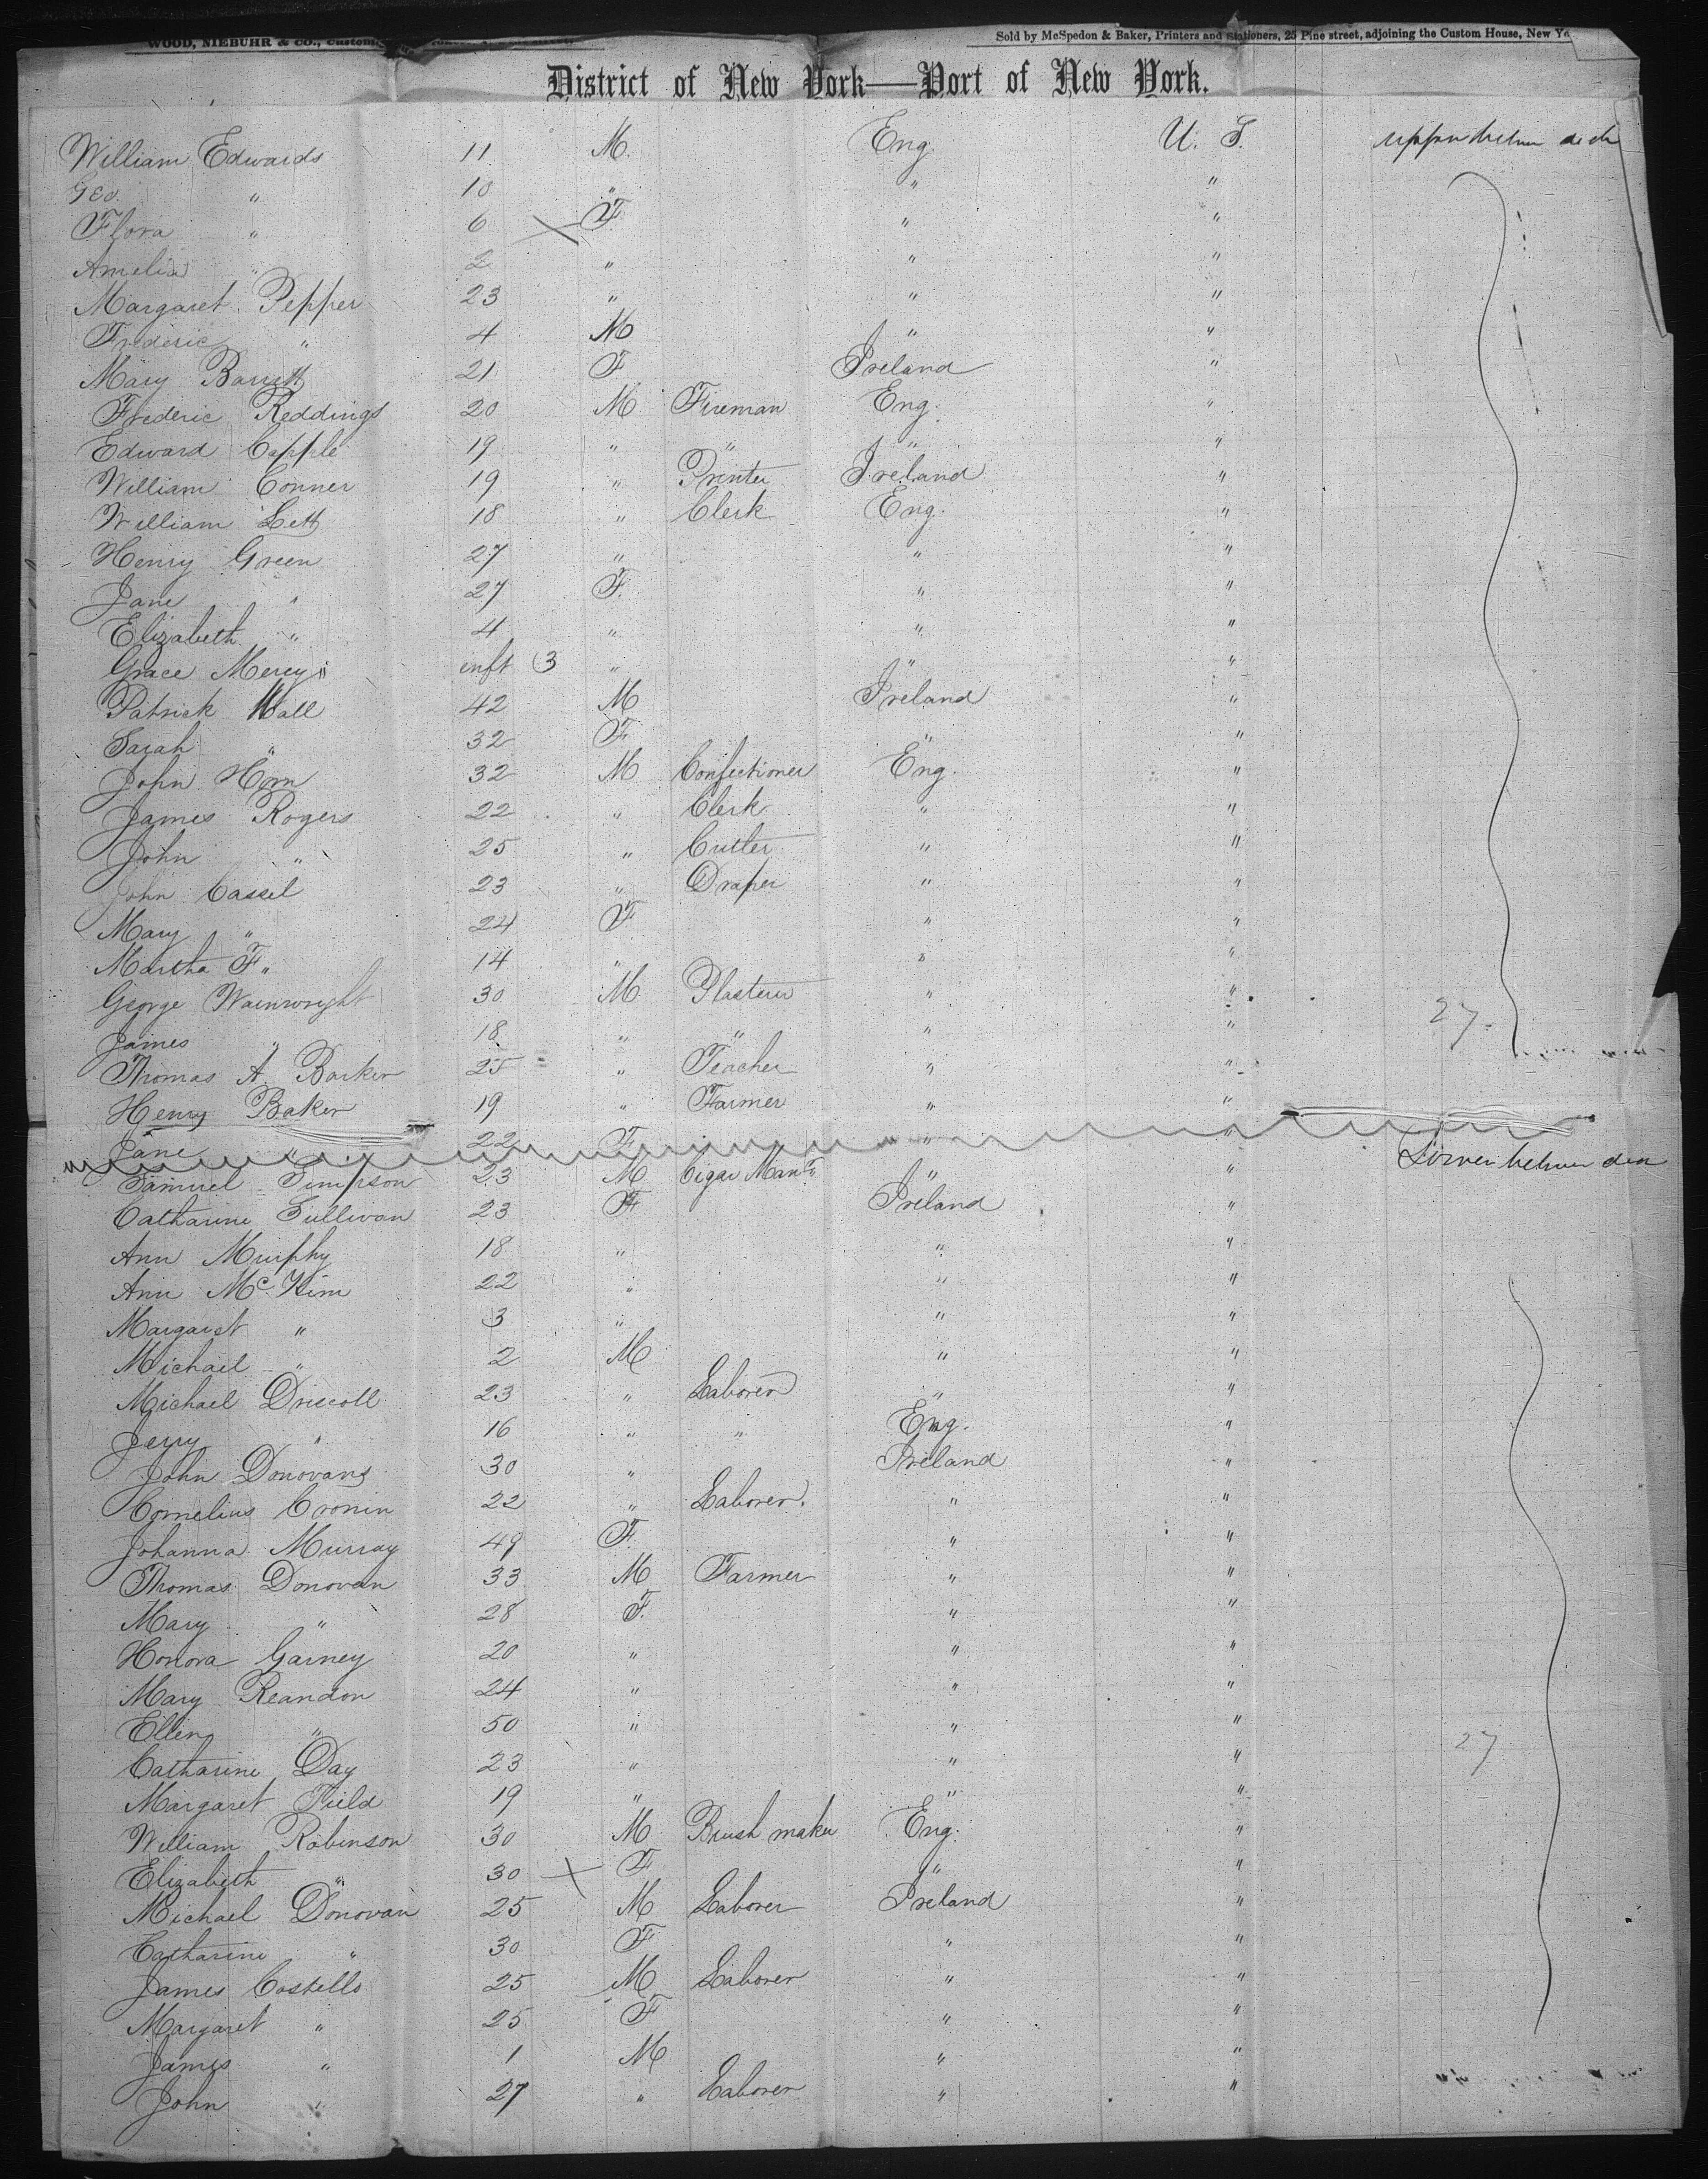 WOOD, NIEBUHR & CO., Custom
Sold by McSpedon & Baker, Printers and Stationers, 25 Pine street, adjoining the Custom House, New Yo
District of New York—Port of New York.
William Edwards 11 M. Eng. U. S. upper between deck
Geo. " 10 " " "
Flora " 6 F " "
Amelia " 2 " " "
Margaret Pepper 23 " " "
Frederic " 4 M " "
Mary Barrett 21 F Ireland "
Frederic Reddings 20 M Fireman Eng. "
Edward Capple 19 " " " "
William Conner 19 " Printer Ireland "
William Lett 18 " Clerk Eng. "
Henry Green 27 " " "
Jane " 27 F. " "
Elizabeth " 4 " " "
Grace Mercy " inft (3 " " "
Patrick Wall 42 M Ireland "
Sarah " 32 F " "
John Horn 32 M Confectioner Eng. "
James Rogers 22 " Clerk " "
John " 25 " Cutter " "
John Cassel 23 " Draper " "
Mary " 24 F " "
Martha F. " 14 " " "
George Wainwright 30 M Plasterer " "
James " 18 " " " " 27
Thomas A. Barker 25 " Teacher " "
Henry Baker 19 " Farmer " "
Jane " 22 F " "
Samuel Simpson 23 M Cigar Manr " " Lower between deck
Catharine Sullivan 23 F Ireland "
Ann Murphy 18 " " "
Ann McKim 22 " " "
Margaret " 3 " " "
Michael " 2 M " "
Michael Driscoll 23 " Laborer " "
Jerry " 16 " " Eng. "
John Donovans 30 " Ireland "
Cornelius Cronin 22 " Laborer. " "
Johanna Murray 49 F " "
Thomas Donovan 33 M Farmer " "
Mary " 28 F. " "
Honora Garney 20 " " "
Mary Reandon 24 " " "
Ellen " 50 " " "
Catharine Day 23 " " " 27
Margaret Field 19 " " "
William Robinson 30 M Brush maker Eng. "
Elizabeth " 30 F " "
Michael Donovan 25 M Laborer Ireland "
Catharine " 30 F " "
James Costello 25 M Laborer " "
Margaret " 25 F " "
James " 1 M " "
John " 27 " Laborer " "